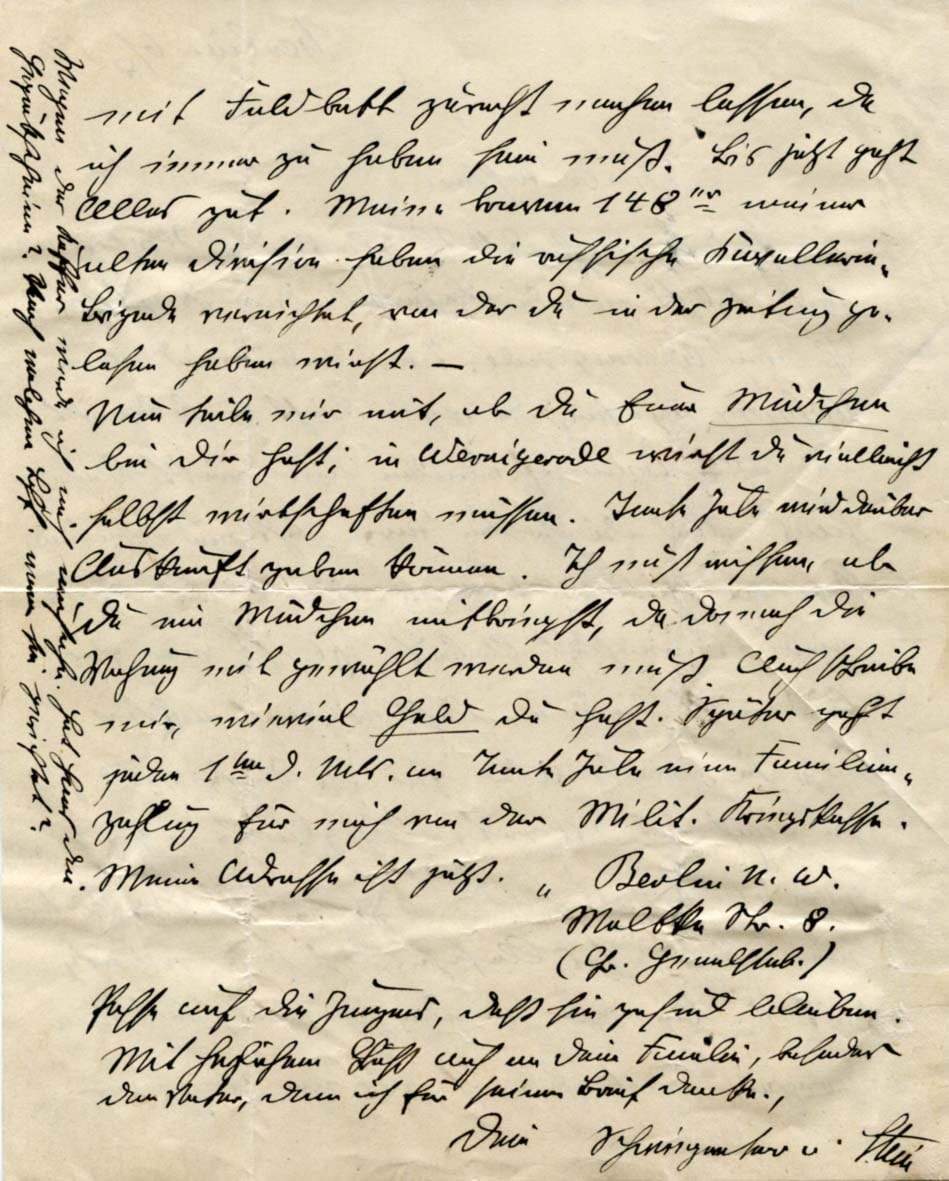 mit Feldbett zurecht machen lassen, da
ich immer zu haben sein muß. Bis jetzt geht
Alles gut. Meine braven 148er meiner
alten Division haben die russische Kavallerie-
brigade vernichtet, von der Du in der Zeitung ge-
lesen haben wirst. —
Nun teile mir mit, ob Du Eure Mädchen
bei Dir hast; in Wernigerode wirst Du vielleicht
selbst wirtschaften müssen. Tante Jula wird darüber
Auskunft geben können. Ich muß wissen, ob
Du ein Mädchen mitbringst, da darnach die
Wohnung mit gewählt werden muß. Auch schreibe
mir, wieviel Geld Du hast. Später geht
jeden 1ten d. Mts. an Tante Jula eine Familien-
zahlung für mich von der Milit. Kriegskasse.
Meine Adresse ist jetzt. „ Berlin N. W.
Moltke Str. 8.
(Gr. Generalstab.)
Passe auf die Jungens, daß sie gesund bleiben.
Mit herzlichem Gruß auch an Deine Familie, besonders
dem Vater, dem ich für seinen Brief danke.,
Dein Schwiegervater v. Stein
Wegen der Koffer werde ich noch nachsehen. Hat Hans den
Gepäckschein? Auch welchen sie gerichtet?